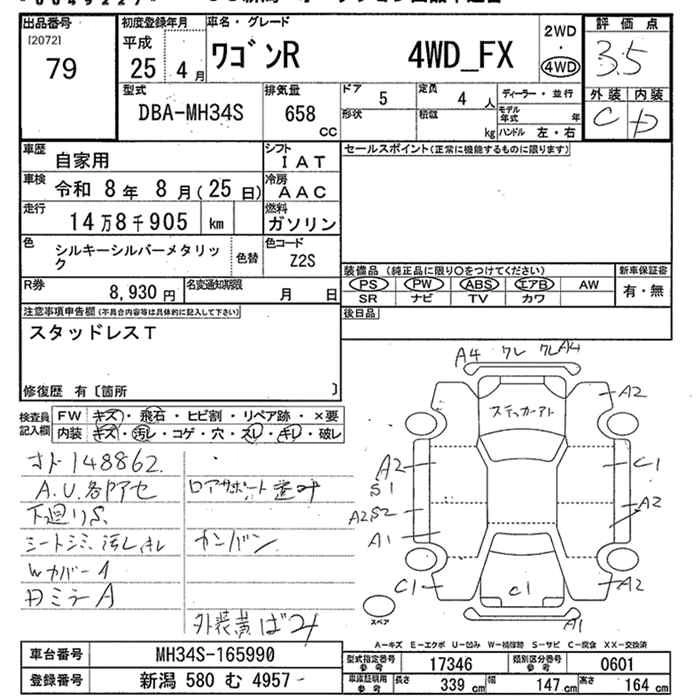 出品番号
[2072]
79
初度登録年月
平成
25 4月
車名・グレード
ワゴンR 4WD_FX
2WD
・
4WD
評価点
3.5
外装 内装
C D
型式
DBA-MH34S
排気量
658
cc
ドア
5
定員
4 人
形状
積載
kg
ディーラー・並行
モデル年式 年
ハンドル 左・右
車歴
自家用
車検
令和 8年 8月(25日)
走行
14万8千905 km
色
シルキーシルバーメタリック
色替
シフト
IAT
冷房
AAC
燃料
ガソリン
色コード
Z2S
R券
8,930円
名変通知期限
月 日
セールスポイント(正常に機能するものに限ります)
装備品(純正品に限り○をつけてください)
PS PW ABS エアB AW
SR ナビ TV カワ
新車保証書
有・無
後日品
注意事項申告欄(不具合内容等は具体的に記入して下さい)
スタッドレスT
修復歴 有〔箇所 〕
検査員記入欄
FW キズ・飛石・ヒビ割・リペア跡・×要
内装 キズ・汚レ・コゲ・穴・スレ・キレ・破レ
148862
A.U.各所アセ
下廻りS
シートシミ、汚レ、キレ
Wカバー1
DミラーA
ロアサポート歪み
カンバン
外装黄ばみ
A4 ワレ ワレ A4
ステッカーアト
A2
A2
S1
C1
A2S2
A2
A1
C1
C1
A2
A1
スペア
A-キズ E-エクボ U-凹み W-補修跡 S-サビ C-腐食 XX-交換済
車台番号
MH34S-165990
登録番号
新潟 580 む 4957
型式指定番号
参考
17346
類別区分番号
参考
0601
車庫証明用
参考
長さ 339 cm
幅 147 cm
高さ 164 cm